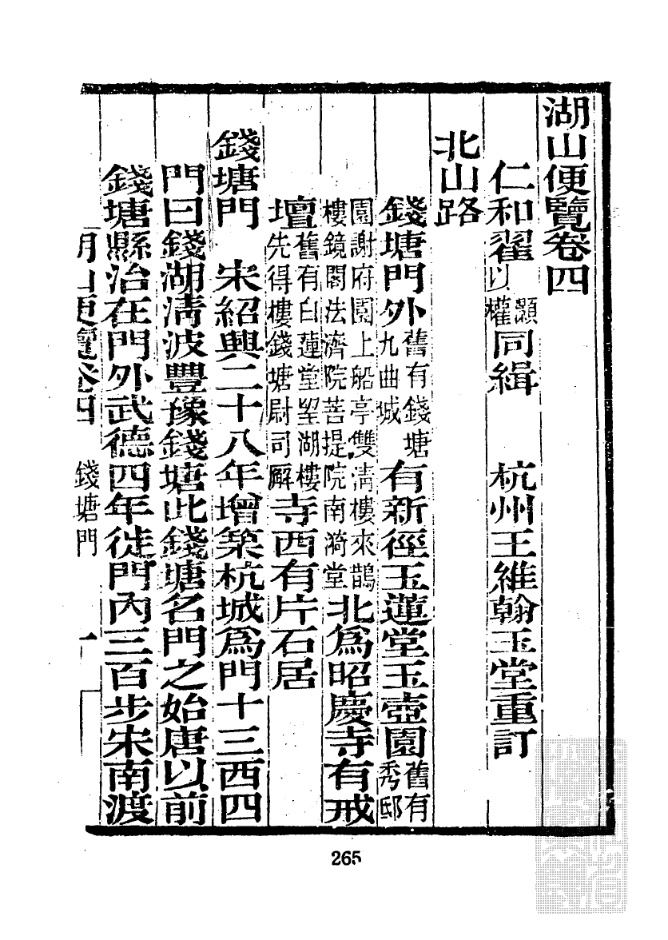 湖山便覽卷四
仁和翟顥以權同緝　杭州王維翰玉堂重訂
北山路
錢塘門外舊有錢塘九曲城有新徑玉蓮堂玉壺園舊有秀邸
園謝府園上船亭雙清樓來鵲樓鏡閣法濟院菩提院南漪堂北爲昭慶寺有戒
壇舊有白蓮堂望湖樓先得樓錢塘尉司廨寺西有片石居
錢塘門　宋紹興二十八年增築杭城爲門十三西四
門曰錢湖清波豐豫錢塘此錢塘名門之始唐以前
錢塘縣治在門外武德四年徙門內三百步宋南渡
湖山便覽卷四　錢塘門　一
265